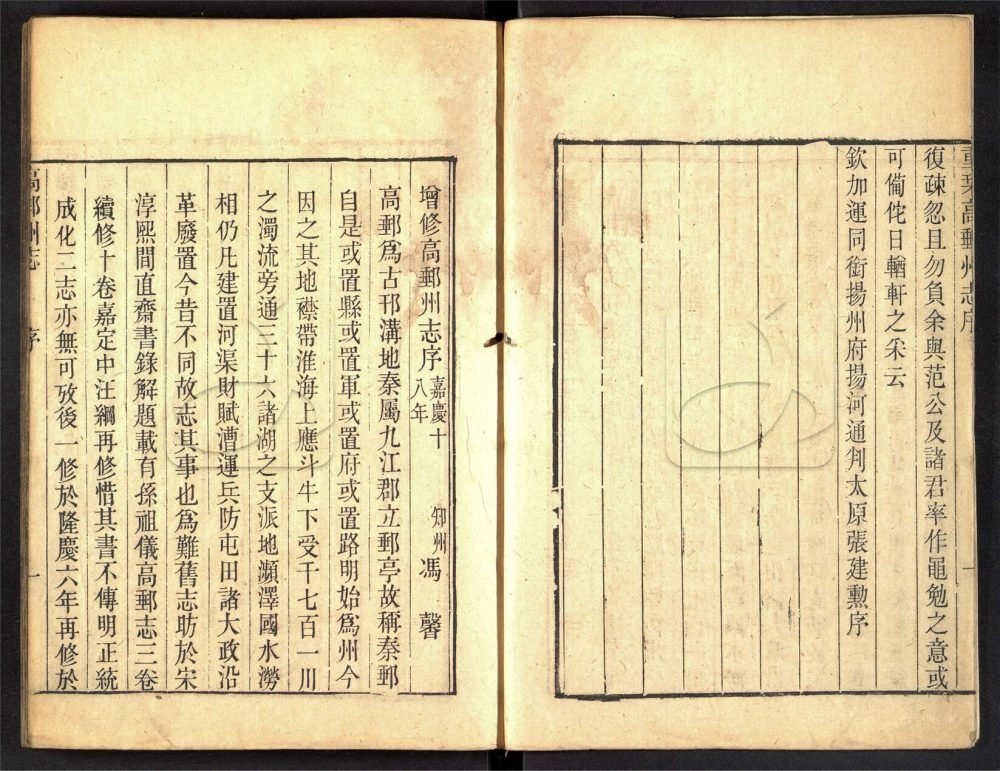 重栞高郵州志序
復疎忽且勿負余與范公及諸君率作黽勉之意或
可僃侘日輶軒之采云
欽加運同銜揚州府揚河通判太原張建勲序
增修高郵州志序嘉慶十八年 知州馮 馨
高郵爲古邗溝地秦屬九江郡立郵亭故稱秦郵
自是或置縣或置軍或置府或置路明始爲州今
因之其地襟帶淮海上應斗牛下受千七百一川
之濁流旁通三十六諸湖之支派地瀕澤國水澇
相仍凡建置河渠財賦漕運兵防屯田諸大政沿
革廢置今昔不同故志其事也爲難舊志昉於宋
淳熙間直齋書錄解題載有孫祖儀高郵志三卷
續修十卷嘉定中汪綱再修惜其書不傳明正統
成化二志亦無可攷後一修於隆慶六年再修於
高郵州志 序 一